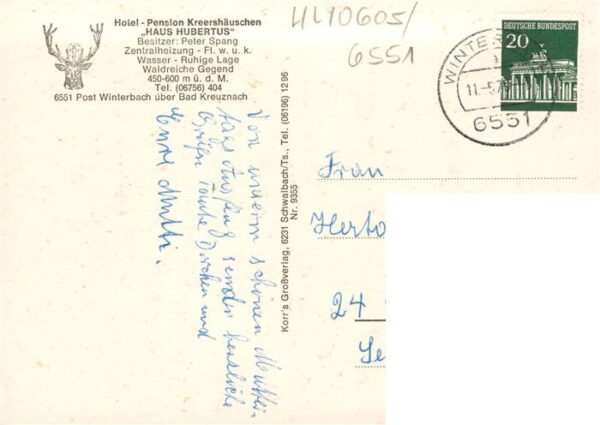 Hotel - Pension Kreershäuschen
„HAUS HUBERTUS"
Besitzer: Peter Spang
Zentralheizung - Fl. w. u. k.
Wasser - Ruhige Lage
Waldreiche Gegend
450-600 m ü. d. M.
Tel. (06756) 404
6551 Post Winterbach über Bad Kreuznach
HLY0605/
6551
DEUTSCHE BUNDESPOST
20
WINTER
11.-5.7
6551
Von unserem schönen Mutter-
tags Ausflug sendet herzliche
Grüße Tante und
Eure Mutti.
Korr's Großverlag, 6231 Schwalbach/Ts., Tel. (06196) 12 96
Nr. 9355
Frau
Herto
24
Se